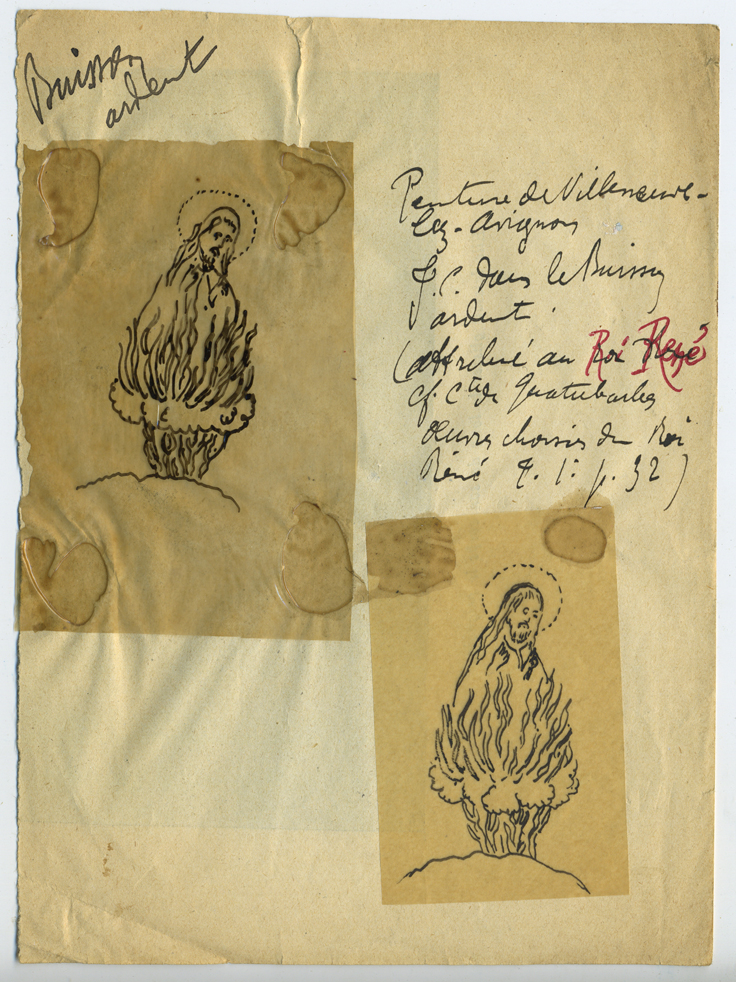 Buisson
ardent
Peinture de Villeneuve-
lez-Avignon
J.C. dans le Buisson
ardent.
(attribué au Roi René
cf. Cte de Quatrebarbes
Œuvres choisies du Roi
René T. 1: p. 32)